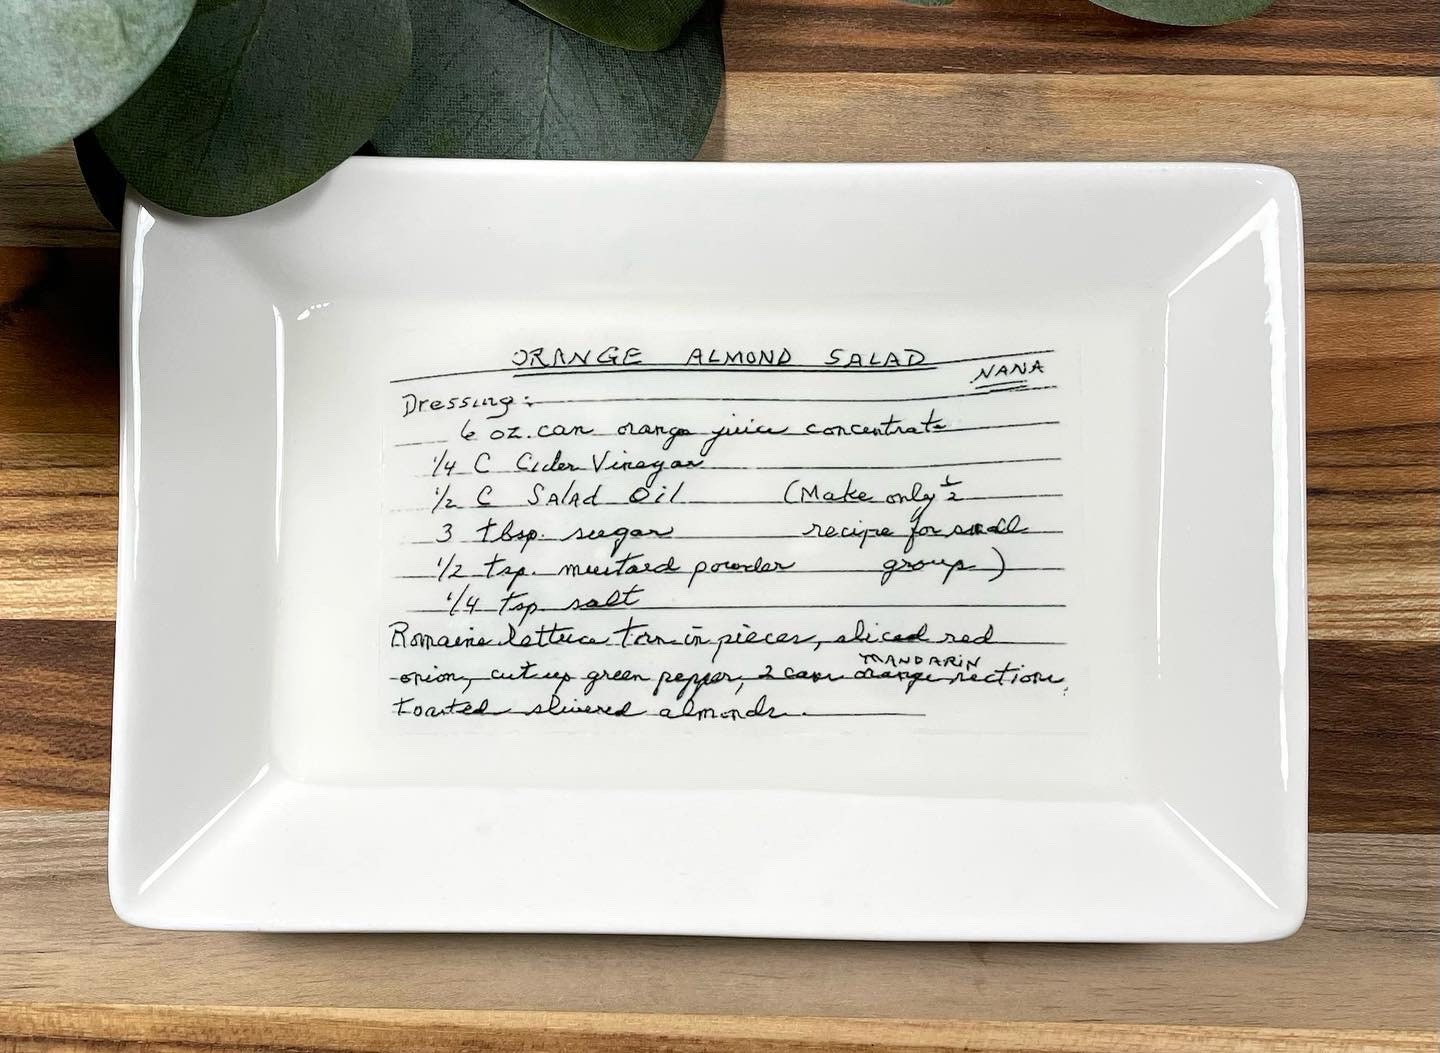 ORANGE ALMOND SALAD
NANA
Dressing:
6 oz. can orange juice concentrate
1/4 C Cider Vinegar
1/2 C Salad Oil (Make only 1/2
3 tbsp. sugar recipe for small
1/2 tsp. mustard powder group)
1/4 tsp salt
Romaine lettuce torn in pieces, sliced red
onion, cut up green pepper, 2 cans MANDARIN orange sections,
toasted slivered almonds.